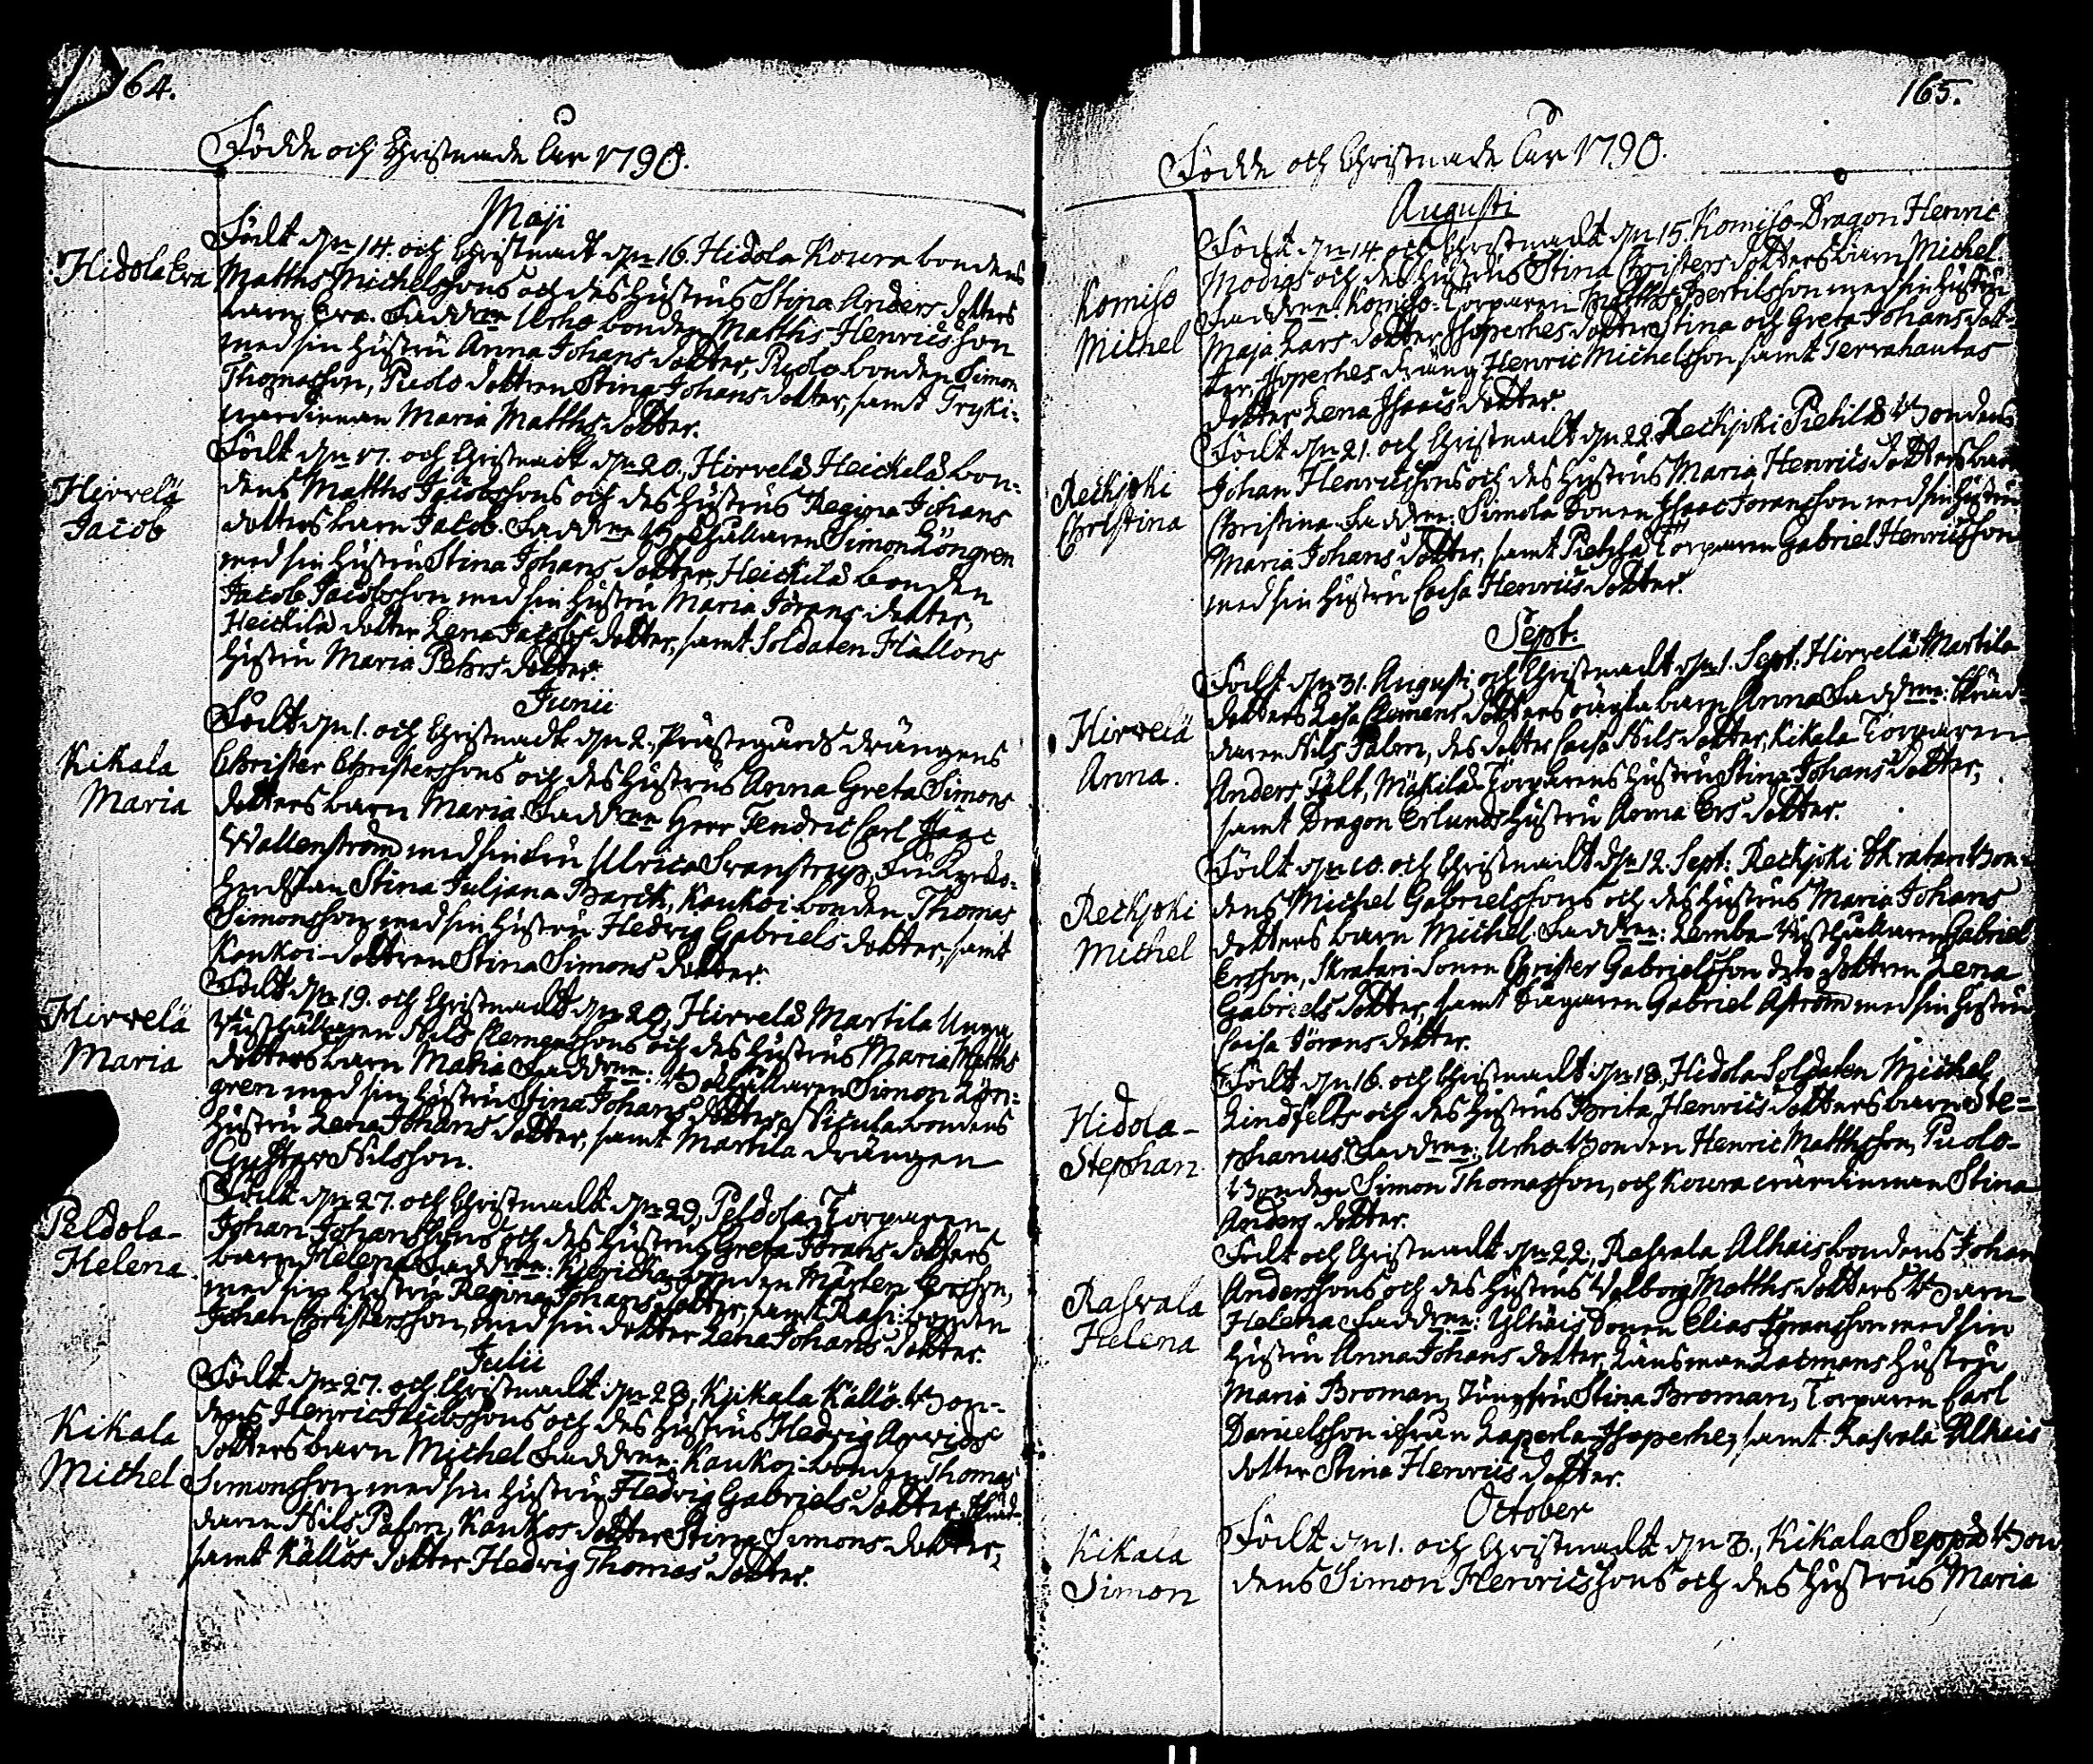 164.
Födde och Christnade År 1790.
Maji
Födt d. 14. och Christnadt d. 16. Hidola Koura bondens
Hidola Eva
Matths Michelssons och des hustrus Stina Anders dotters
barn Eva. Faddrar Urho bonden Matths Henricsson
med sin hustru Anna Johans dotter, Pudo bonden Simon
Thomasson, Pudo dottren Stina Johans dotter, samt Tryki-
värdinnan Maria Matths dotter.
Födt d. 17. och Christnadt d. 20. Hirvelä Heickilä bon-
Hirvelä
Jacob
dens Matths Jacobssons och des hustrus Regina Johans
dotters barn Jacob. Faddrar Bokhållaren Simon Löngren
med sin hustru Stina Johans dotter, Heickilä bonden
Jacob Jacobsson med sin hustru Maria Jörans dotter,
Heickilä dotter Lena Jacobs dotter, samt Soldaten Hallons
hustru Maria Pehrs dotter.
Junii
Födt d. 1. och Christnadt d. 2. Prästegårds drängens
Kikala
Maria
Christer Christerssons och des hustrus Anna Greta Simons
dotters barn Maria. Faddrar Herr Fendric Carl
Wallenström med sin Fru Ulrica
Stina Juljana Barck, Kaukoi bonden Thomas
Simonsson med sin hustru Hedvig Gabriels dotter, samt
Kaukoi-dottren Stina Simons dotter.
Födt d. 19. och Christnadt d. 20. Hirvelä Martila Unga
Hirvelä
Maria
Rusthållaren Nils Clemenssons och des hustrus Maria Matths
dotters barn Maria. Faddrar: Bokhållaren Simon Lön-
gren med sin hustru Stina Johans dotter, Nicula bondens
hustru Lena Johans dotter, samt Martila drängen
Gustav Nilsson.
Födt d. 27. och Christnadt d. 29. Peldola Torparen
Peldola-
Helena
Johan Johanssons och des hustrus Greta Jörans dotters
barn Helena. Faddrar: bonden Mårten Ersson,
med sin hustru Regina Johans dotter, samt Rasi-bonden
Johan Christersson, med sin dotter Lena Johans dotter.
Julii
Födt d. 27. och Christnadt d. 28. Kjikala Källö Bon-
Kikala
Michel
dens Henric Jacobssons och des hustrus Hedvig Arvids
dotters barn Michel. Faddrar: Kaukoi-bonden Thomas
Simonsson med sin hustru Hedvig Gabriels dotter, Skräd-
daren Nils Palm, Kaukos dotter Stina Simons dotter,
samt Källös dotter Hedvig Thomas dotter.
165.
Födde och Christnade År 1790.
Augusti
Födt d. 14. och Christnadt d. 15. Komiso-Dragon Henric
Komiso
Michel
Modigs och des hustrus Stina Christers dotters barn Michel
Faddrar: Komiso-Torparen Matths Bertilsson med sin hustru
Maja Lars dotter, Isoperhes dotter Stina och Greta Johans dot-
ter, Isoperhes dräng Henric Michelsson, samt Terrahautas
dotter Lena Isaacs dotter.
Födt d. 21. och Christnadt d. 22. Reckjoki Pietilä Bondens
Reckjoki
Christina
Johan Henricssons och des hustrus Maria Henrics dotters barn
Christina. Faddrar: Simola Sonen Isaac Joransson med sin hustru
Maria Johans dotter, samt Torparen Gabriel Henricsson
med sin hustru Caisa Henrics dotter.
Sept.
Födt d. 31. Augusti och Christnadt d. 1. Sept. Hirvelä Martila
Hirvelä
Anna.
dotters Lisa Clemens dotters oägta barn Anna. Faddrar: Skräd-
daren Nils Palm, des dotter Caisa Nils dotter, Kikala Torparen
Anders Fält, Mäkilä Torparens hustru Stina Johans dotter,
samt Dragon Erlunds hustru Anna Ers dotter.
Födt d. 10. och Christnadt d. 12. Sept: Reckjoki Skratari Bon-
Reckjoki
Michel
dens Michel Gabrielssons och des hustrus Maria Johans
dotters barn Michel. Faddrar: Lemba-Rusthållaren Gabriel
Ersson, Skratari-Sonen Christer Gabrielsson dito dottren Lena
Gabriels dotter, samt Gabriel Aström med sin hustru
Caisa Jörans dotter.
Födt d. 16. och Christnadt d. 18. Hidola Soldaten Michel
Hidola-
Stephan
Lindfelts och des hustrus Brita Henrics dotters barn Ste-
phanus. Faddrar: Urho Bonden Henric Matthsson, Pudo-
Bonden Simon Thomasson, och Koura värdinnan Stina
Anders dotter.
Födt och Christnadt d. 22. Rasvala Alhais bondens Johan
Rasvala
Helena
Anderssons och des hustrus Valborg Matths dotters Barn
Helena. Faddrar: Ylhäis Sonen Elias Joransson med sin
hustru Anna Johans dotter, Länsman hustru
Maria Broman, Jungfru Stina Broman, Torparen Carl
Danielsson ifrån Laperla Isoperhe, samt Rasvala Alhais
dotter Stina Henrics dotter.
October
Födt d. 1. och Christnadt d. 3. Kikala Seppä Bon
Kikala
Simon
dens Simon Henricssons och des hustrus Maria